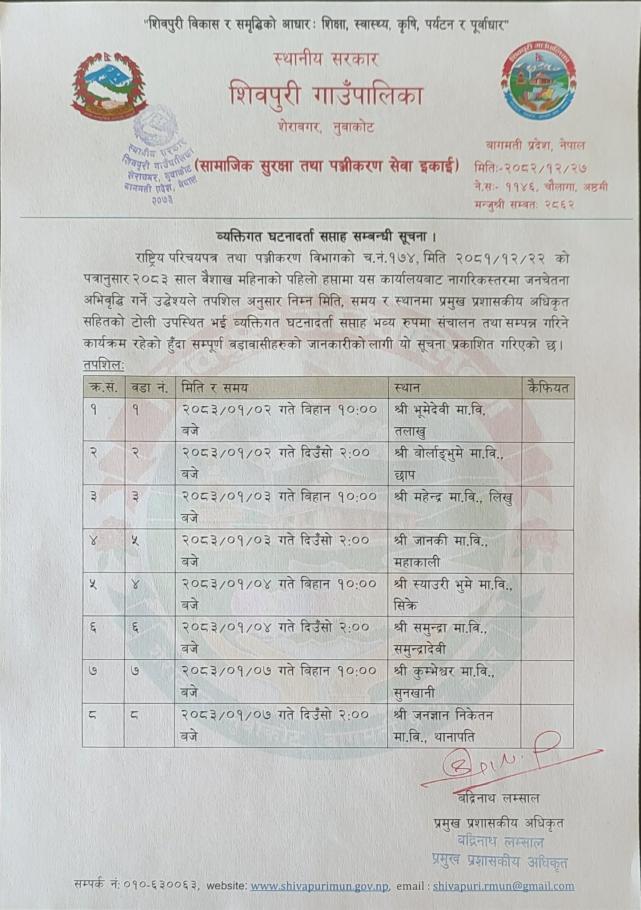 "शिवपुरी विकास र समृद्धिको आधारः शिक्षा, स्वास्थ्य, कृषि, पर्यटन र पूर्वाधार"
स्थानीय सरकार
शिवपुरी गाउँपालिका
शेराबगर, नुवाकोट
(सामाजिक सुरक्षा तथा पञ्जीकरण सेवा इकाई)
बागमती प्रदेश, नेपाल
मितिः-२०८२/१२/२७
ने.सः- ११४६, चौलागा, अष्ठमी
मन्जुश्री सम्बतः २८६२
स्थानीय सरकार
शिवपुरी गाउँपालिका
शेराबगर, नुवाकोट
बागमती प्रदेश, नेपाल
२०७३
व्यक्तिगत घटनादर्ता सप्ताह सम्बन्धी सूचना ।
राष्ट्रिय परिचयपत्र तथा पञ्जीकरण विभागको च.नं.१७४, मिति २०८१/१२/२२ को
पत्रानुसार २०८३ साल वैशाख महिनाको पहिलो हप्तामा यस कार्यालयबाट नागरिकस्तरमा जनचेतना
अभिवृद्धि गर्ने उद्धेश्यले तपशिल अनुसार निम्न मिति, समय र स्थानमा प्रमुख प्रशासकीय अधिकृत
सहितको टोली उपस्थित भई व्यक्तिगत घटनादर्ता सप्ताह भव्य रुपमा संचालन तथा सम्पन्न गरिने
कार्यक्रम रहेको हुँदा सम्पूर्ण वडाबासीहरुको जानकारीको लागी यो सूचना प्रकाशित गरिएको छ।
तपशिलः
क्र.सं. वडा नं. मिति र समय स्थान कैफियत
१ १ २०८३/०१/०२ गते बिहान १०:०० बजे श्री भूमेदेवी मा.वि. तलाखु
२ २ २०८३/०१/०२ गते दिउँसो २:०० बजे श्री वोर्लाङ्भुमे मा.वि., छाप
३ ३ २०८३/०१/०३ गते बिहान १०:०० बजे श्री महेन्द्र मा.वि., लिखु
४ ५ २०८३/०१/०३ गते दिउँसो २:०० बजे श्री जानकी मा.वि., महाकाली
५ ४ २०८३/०१/०४ गते बिहान १०:०० बजे श्री स्याउरी भुमे मा.वि., सिक्रे
६ ६ २०८३/०१/०४ गते दिउँसो २:०० बजे श्री समुन्द्रा मा.वि., समुन्द्रादेवी
७ ७ २०८३/०१/०७ गते बिहान १०:०० बजे श्री कुम्भेश्वर मा.वि., सुनखानी
८ ८ २०८३/०१/०७ गते दिउँसो २:०० बजे श्री जनज्ञान निकेतन मा.वि., थानापति
बद्रिनाथ लम्साल
प्रमुख प्रशासकीय अधिकृत
बद्रिनाथ लम्साल
प्रमुख प्रशासकीय अधिकृत
सम्पर्क नं: ०१०-६३००६३, website: www.shivapurimun.gov.np, email : shivapuri.rmun@gmail.com